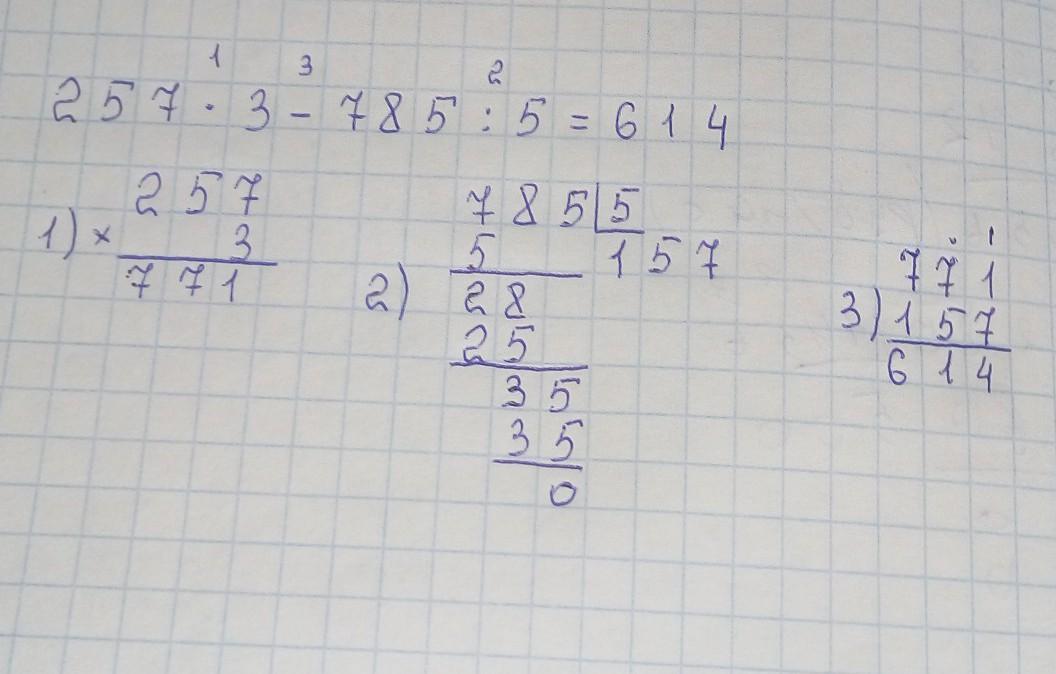 1 3 2
257 · 3 - 785 : 5 = 614
1) × 257
3
771
2) 785 5
5 157
28
25
35
35
0
3) 771
157
614